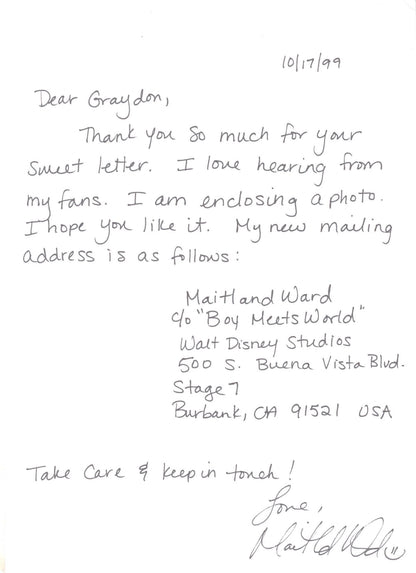 10/17/99
Dear Graydon,
Thank you so much for your
sweet letter. I love hearing from
my fans. I am enclosing a photo.
I hope you like it. My new mailing
address is as follows:
Maitland Ward
c/o "Boy Meets World"
Walt Disney Studios
500 S. Buena Vista Blvd.
Stage 7
Burbank, CA 91521 USA
Take Care & keep in touch!
Love,